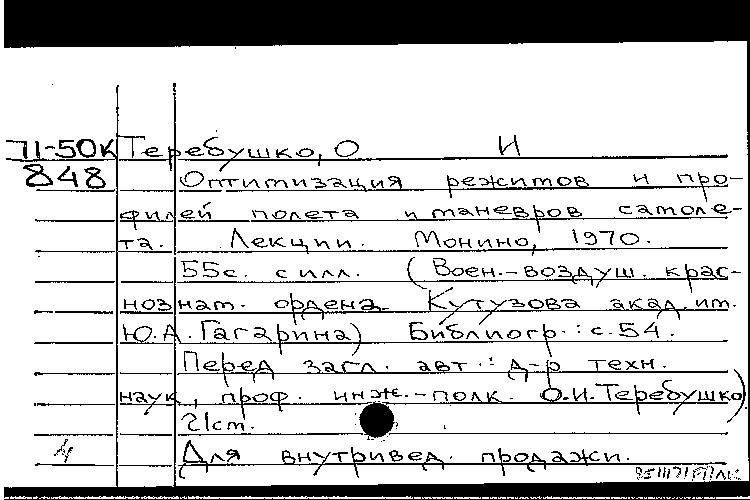 71-50К Теребушко, О И
848 Оптимизация режимов и про-
филей полета и маневров самоле-
та. Лекции. Монино, 1970.
55с. с илл. (Воен.-воздуш. крас-
нознам. ордена Кутузова акад. им.
Ю.А. Гагарина) Библиогр.: с. 54.
Перед загл. авт.: д-р техн.
наук, проф. инж.-полк. О.И. Теребушко)
21см.
Для внутривед. продажи.